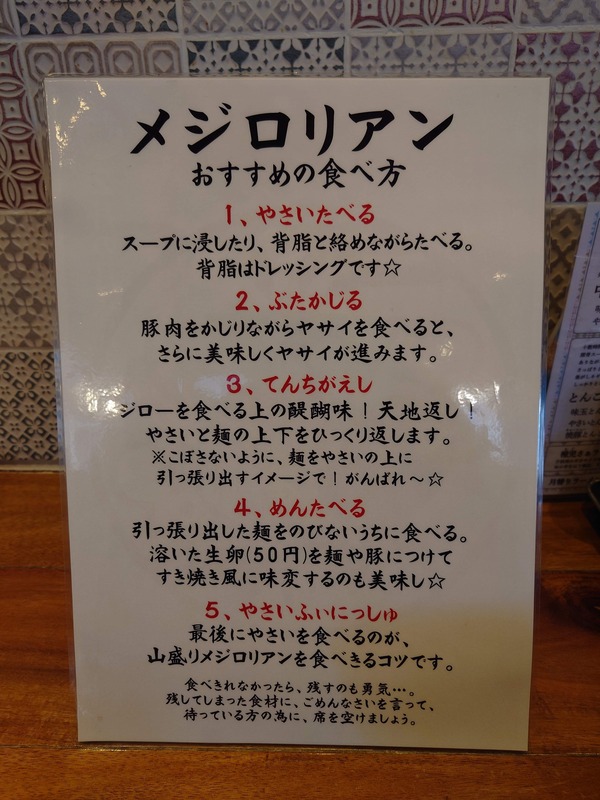 メジロリアン
おすすめの食べ方
1、やさいたべる
スープに浸したり、背脂と絡めながらたべる。
背脂はドレッシングです☆
2、ぶたかじる
豚肉をかじりながらヤサイを食べると、
さらに美味しくヤサイが進みます。
3、てんちがえし
ジローを食べる上の醍醐味！天地返し！
やさいと麺の上下をひっくり返します。
※こぼさないように、麺をやさいの上に
引っ張り出すイメージで！がんばれ～☆
4、めんたべる
引っ張り出した麺をのびないうちに食べる。
溶いた生卵(50円)を麺や豚につけて
すき焼き風に味変するのも美味し☆
5、やさいふぃにっしゅ
最後にやさいを食べるのが、
山盛りメジロリアンを食べきるコツです。
食べきれなかったら、残すのも勇気…。
残してしまった食材に、ごめんなさいを言って、
待っている方の為に、席を空けましょう。
とんこ
味玉とん